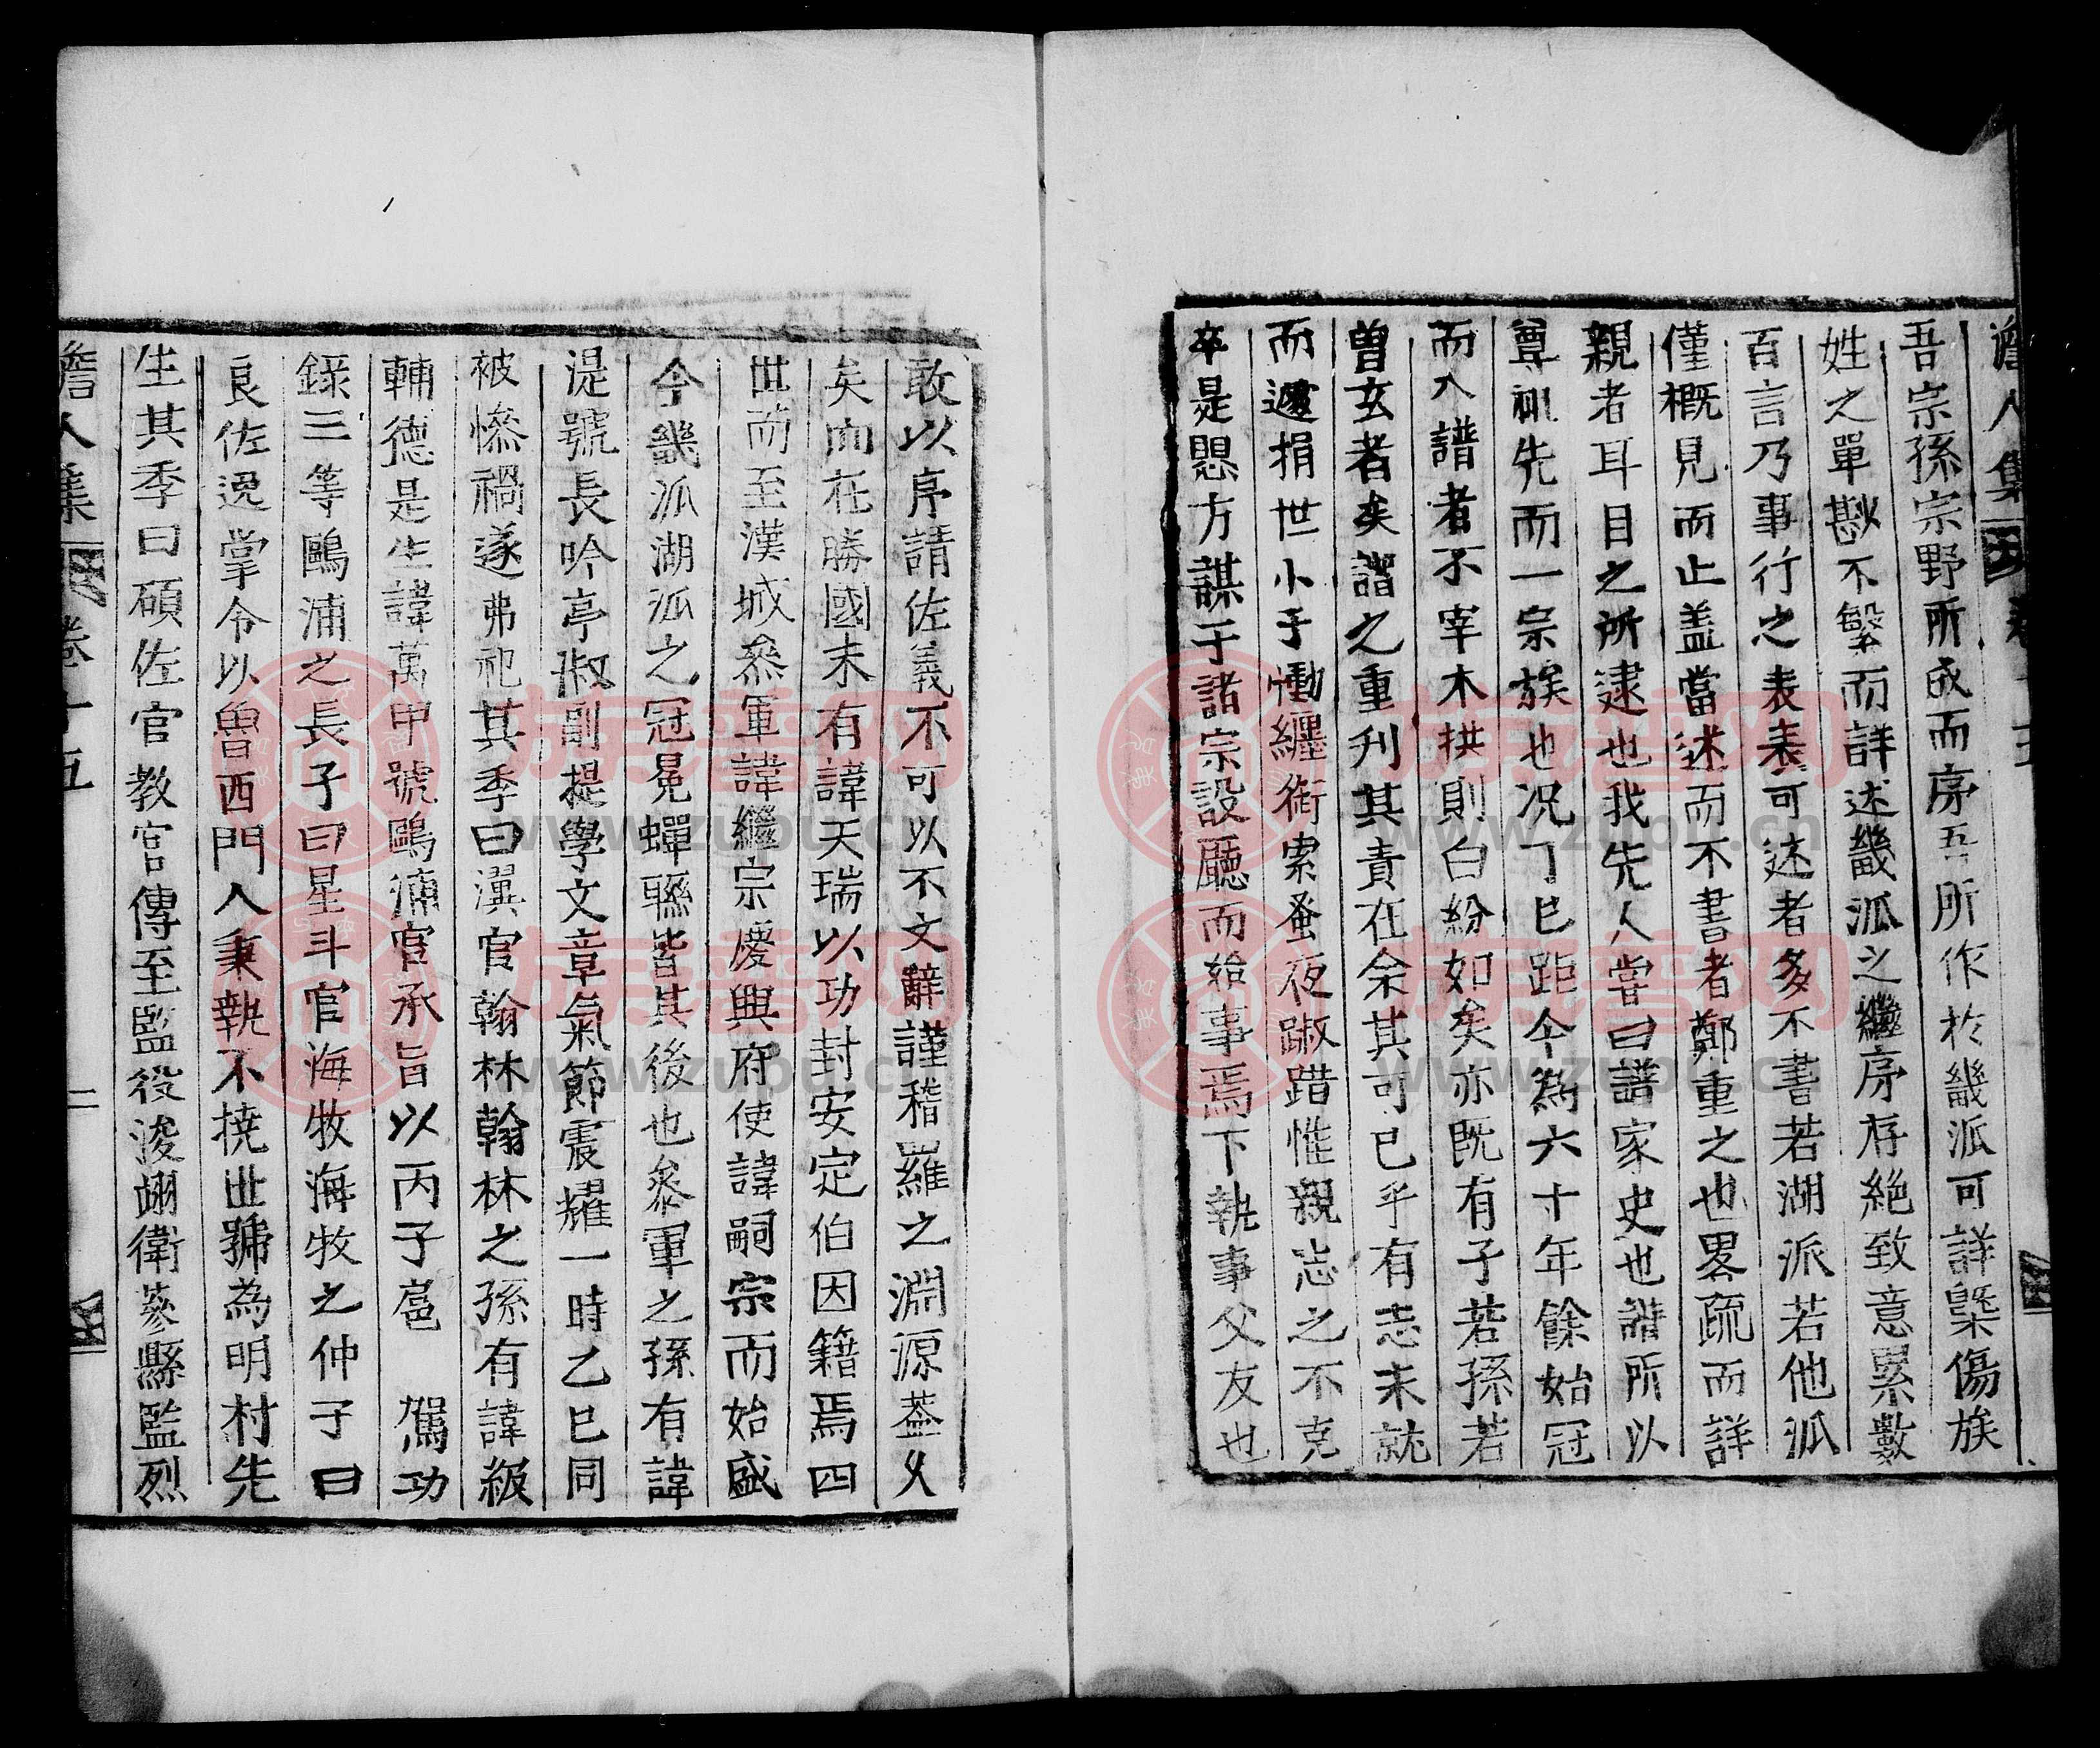 澹人集
吾宗孫宗野所成而序吾所作於畿派可詳槩傷族
姓之單尠不繁而詳述畿派之繼序存絶致意累數
百言乃事行之表表可述者多不書若湖派若他派
僅概見而止盖當述而不書者鄭重之也畧疏而詳
親者耳目之所逮也我先人嘗曰譜家史也譜所以
尊祖先而一宗族也况丁巳距今為六十年餘始冠
而入譜者不宰木拱則白紛如矣亦既有子若孫若
曽玄者矣譜之重刋其責在余其可已乎有志未就
而遽捐世小子慟纏銜索蚤夜踧踖惟親志之不克
卒是愳方謀于諸宗設廳而始事焉下執事父友也
敢以序請佐義不可以不文辭謹稽羅之淵源盖乆
矣而在勝國末有諱天瑞以功封安定伯因籍焉四
世而至漢城叅軍諱繼宗慶興府使諱嗣宗而始盛
今畿派湖派之冠冕蟬聯皆其後也叅軍之孫有諱
湜號長吟亭淑副提學文章氣節震耀一時乙巳同
被慘禍遂弗祀其季曰濵官翰林翰林之孫有諱級
輔德是生諱萬甲號鷗浦官承旨以丙子扈 駕功
録三等鷗浦之長子曰星斗官海牧海牧之仲子曰
良佐逸掌令以魯西門人秉執不撓世號為明村先
生其季曰碩佐官教官傳至監役浚翊衛蔘縣監烈
澹人集 卷十五 二
www.zupu.cn
www.zupu.cn
www.zupu.cn
www.zupu.cn